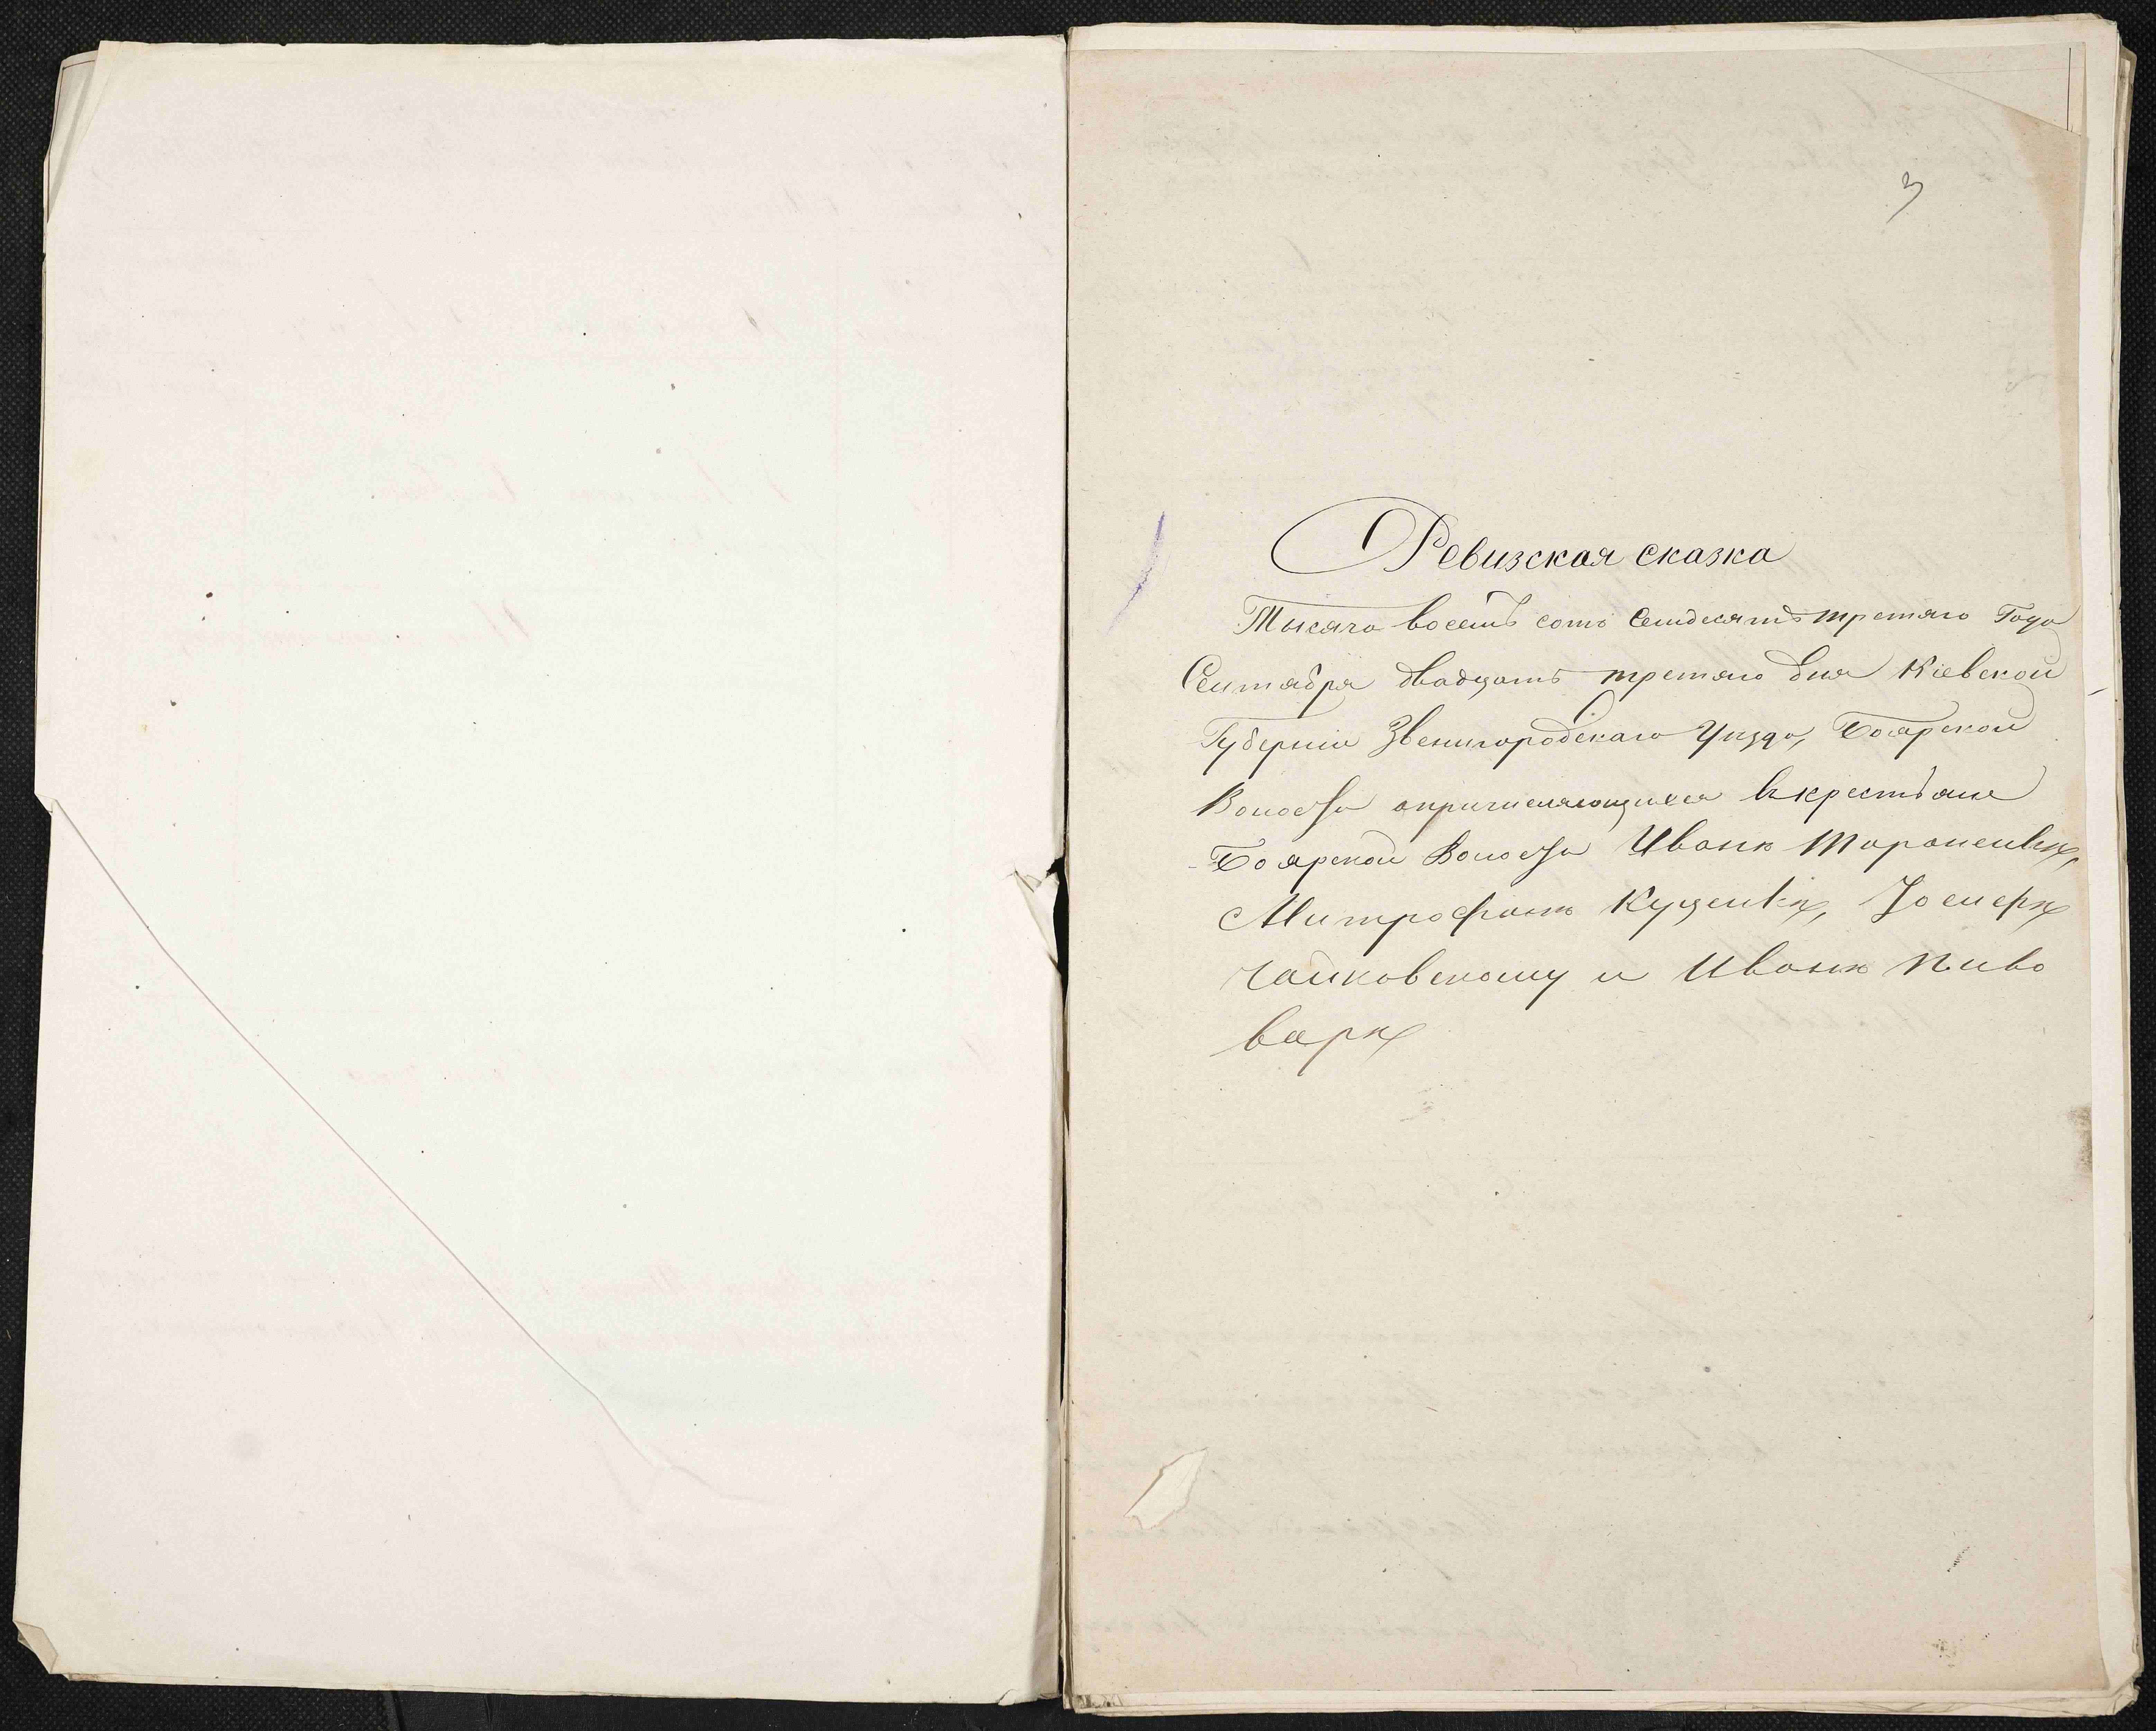 3
Ревизская сказка
Тысяча восемь сотъ семдесятъ третяго Года
Сентября двадцать третяго дня Кіевской
Губерніи Звенигородскаго Уезда, Боярской
Волости опричисляющихся вкрестьяне
Боярской Волости Иванѣ
Митрофанѣ Куценкѣ,
Чайковскому и Иванѣ Пиво
варѣ